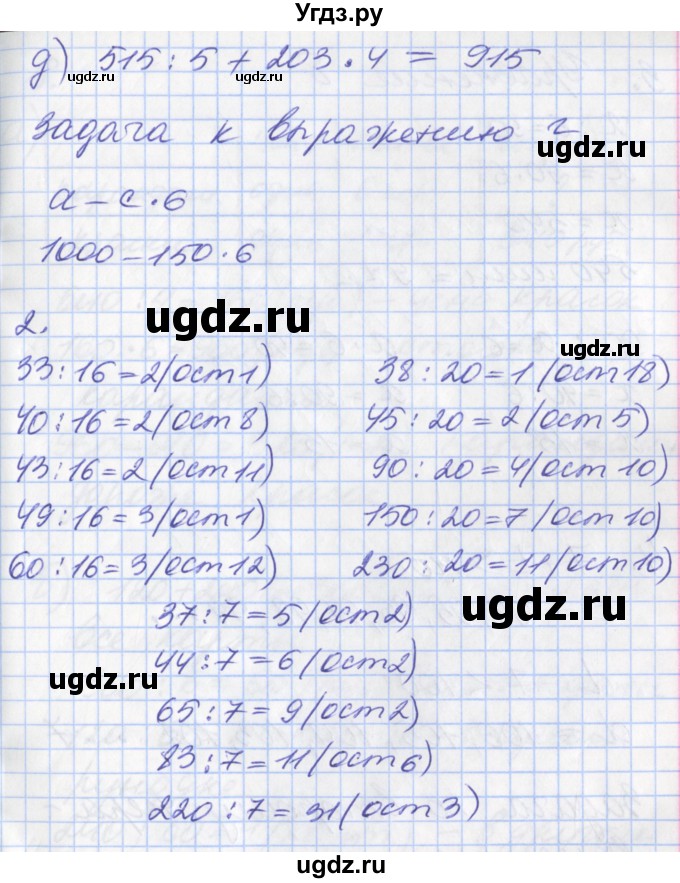 Угдз.ру
д) 515 : 5 + 203 · 4 = 915
ugdz.ru ugdz.ru
задача к выражению г
ugdz.ru
a – c · 6
1000 – 150 · 6
ugdz.ru
2.
33 : 16 = 2 (ост 1) 38 : 20 = 1 (ост 18)
40 : 16 = 2 (ост 8) 45 : 20 = 2 (ост 5)
43 : 16 = 2 (ост 11) 90 : 20 = 4 (ост 10)
49 : 16 = 3 (ост 1) 150 : 20 = 7 (ост 10)
60 : 16 = 3 (ост 12) 230 : 20 = 11 (ост 10)
ugdz.ru
37 : 7 = 5 (ост 2)
44 : 7 = 6 (ост 2)
ugdz.ru
65 : 7 = 9 (ост 2)
83 : 7 = 11 (ост 6)
ugdz.ru
220 : 7 = 31 (ост 3)
ugdz.ru